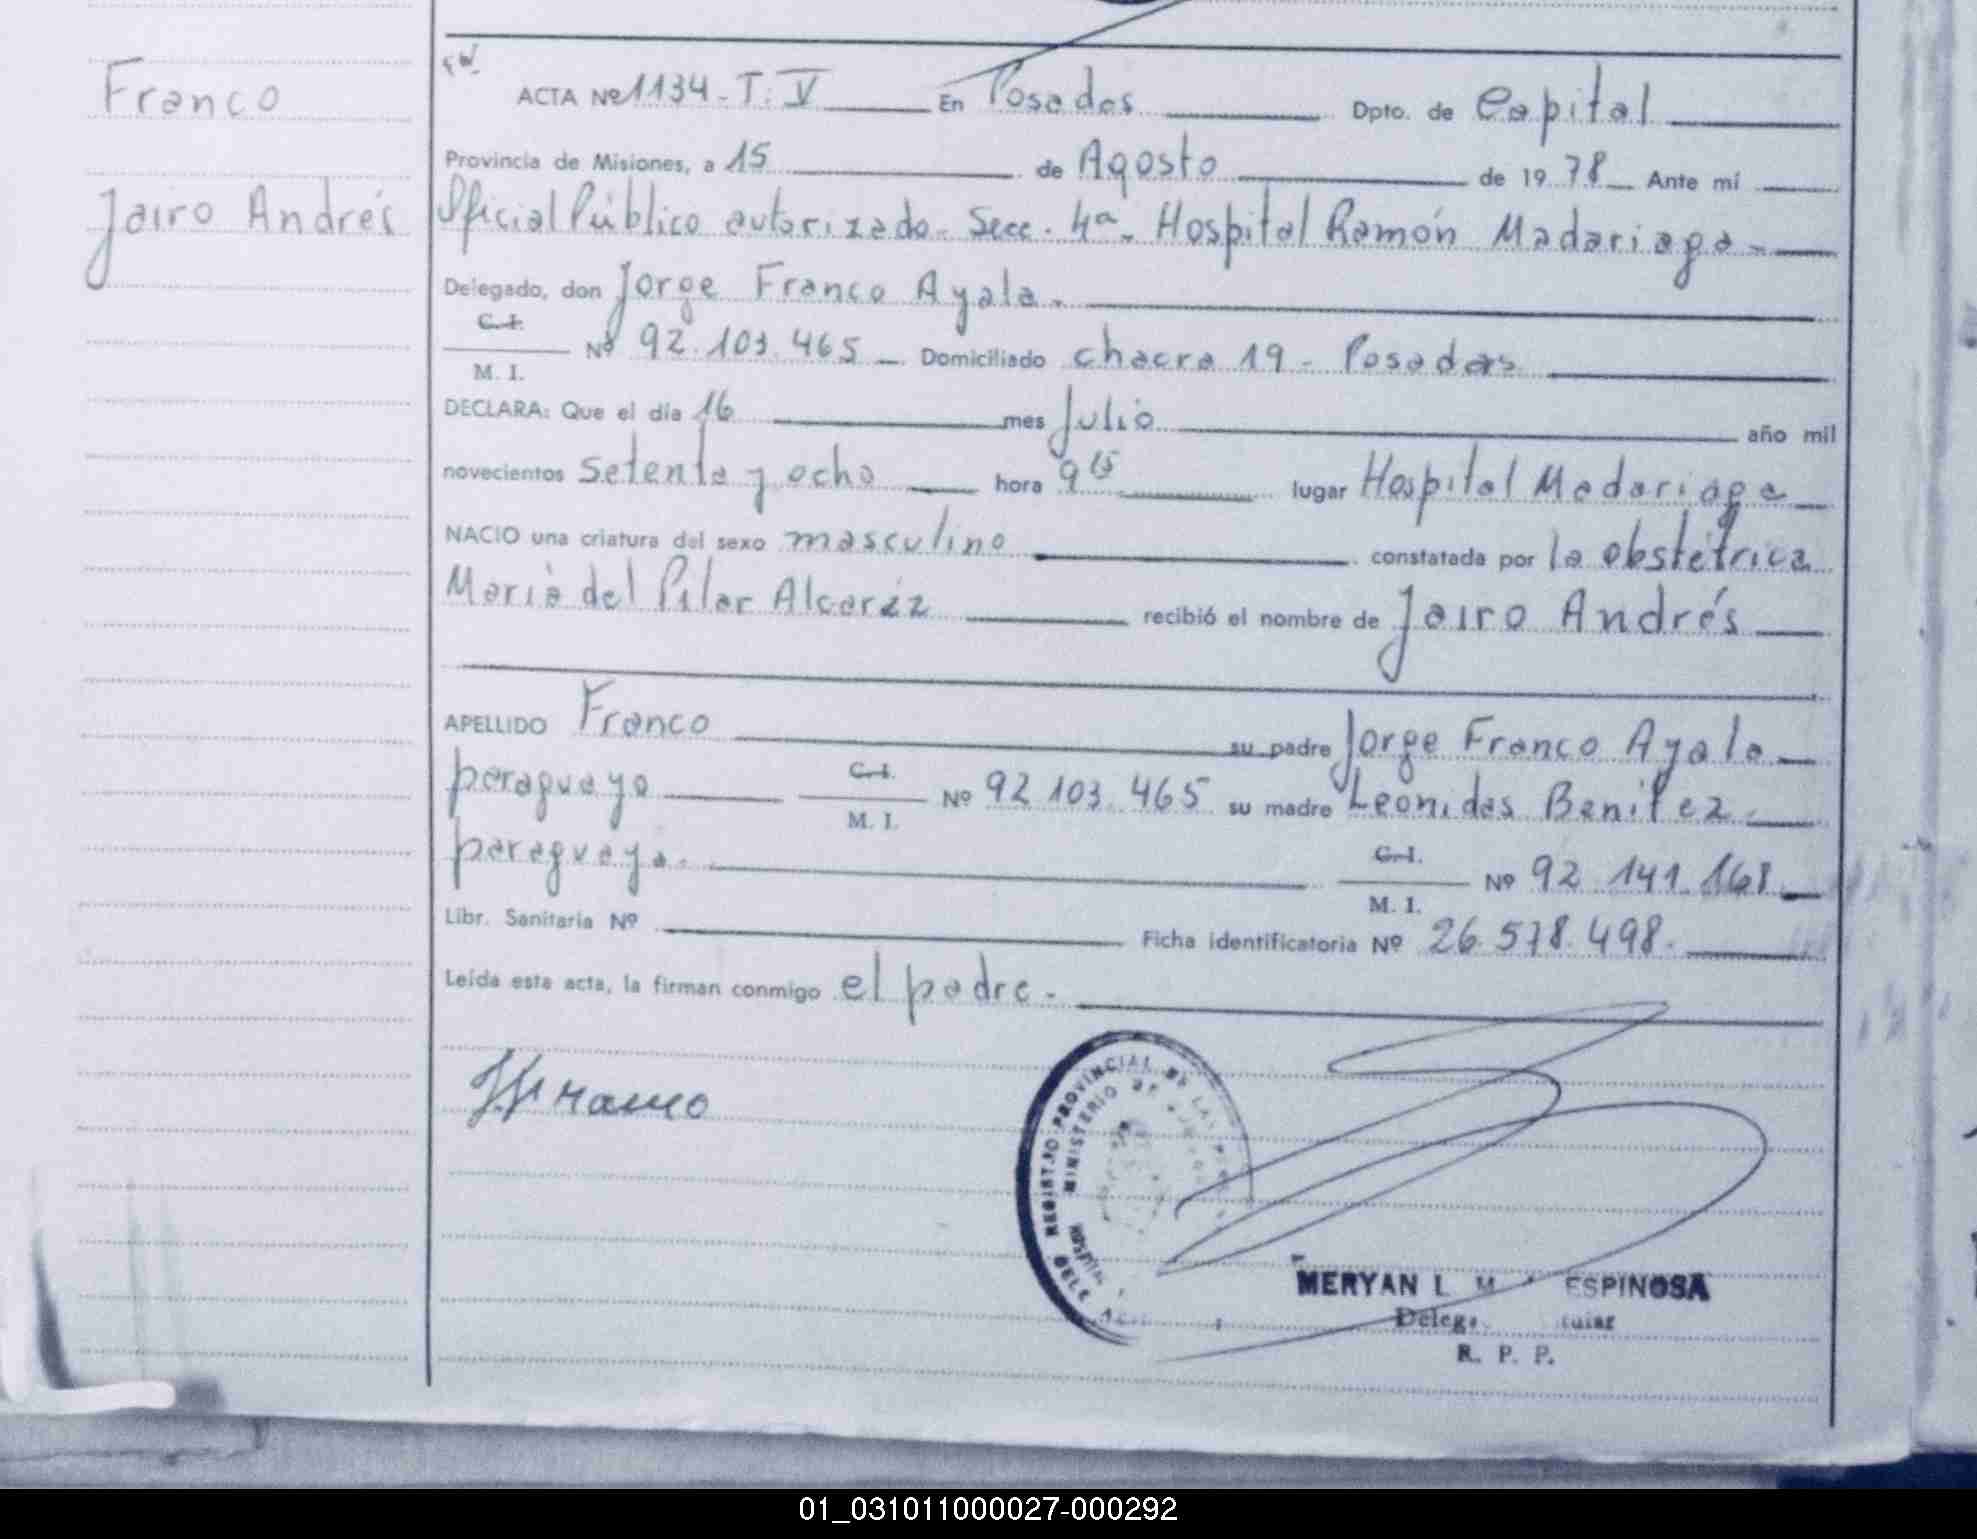 Franco
Jairo Andrés
ACTA Nº 1134 - T: V En Posadas Dpto. de Capital
Provincia de Misiones, a 15 de Agosto de 19 78 Ante mí
Oficial Público autorizado - Secc. 4ª - Hospital Ramón Madariaga -
Delegado, don Jorge Franco Ayala.
C. I.
M. I.
Nº 92.103.465 Domiciliado chacra 19 - Posadas
DECLARA: Que el día 16 mes Julio año mil
novecientos setenta y ocho hora 9 15 lugar Hospital Madariaga
NACIO una criatura del sexo masculino constatada por la obstétrica
María del Pilar Alcaráz recibió el nombre de Jairo Andrés
APELLIDO Franco su padre Jorge Franco Ayala
paraguayo C. I. M. I. Nº 92.103.465 su madre Leonidas Benitez
paraguaya. C. I. M. I. Nº 92.141.168
Libr. Sanitaria Nº Ficha identificatoria Nº 26.578.498.
Leída esta acta, la firman conmigo el padre.
J. Franco
REGISTRO PROVINCIAL DE LAS
MINISTERIO DE
MERYAN L M ESPINOSA
R. P. P.
01_031011000027-000292